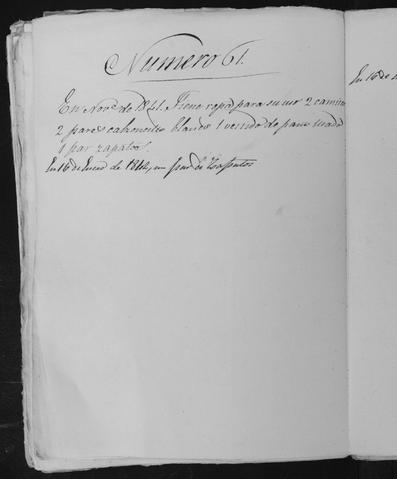 Numero 61.
En Nov.e de 1841. Tiene ropa para su uso 2 camisas
2 pares calzoncillos blancos 1 vestido de paño usado
1 par zapatos.
En 16 de Enero de 1842, un par de Zapatos
En 16 de